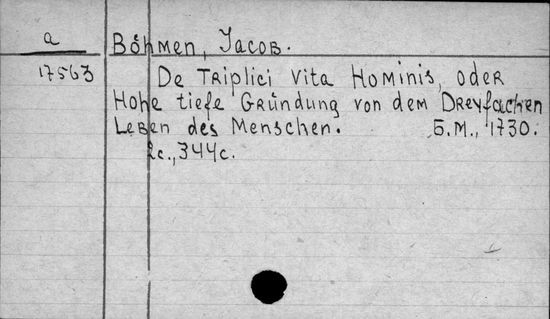 a Böhmen, Jacob.
17563 De Triplici Vita Hominis, oder
Hohe tiefe Gründung von dem Dreyfachen
Leben des Menschen. Б.М., 1730.
2с., 344с.